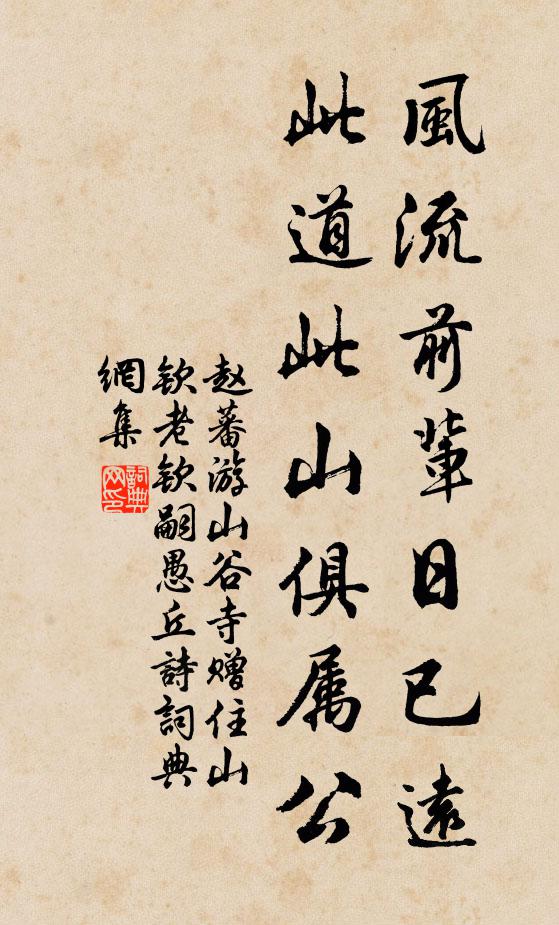 風流前輩日已遠
此道此山俱属公
赵蕃游山谷寺赠住山
欽老欽嗣愚丘詩詞典
網集
詞典網印